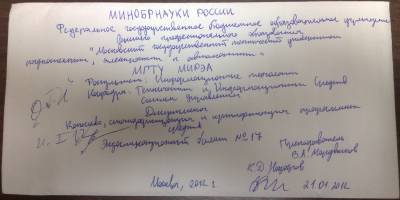 МИНОБРНАУКИ РОССИИ
Федеральное государственное бюджетное образовательное учреждение
Высшего профессионального образования
"Московский государственный технический университет
радиотехники, электроники и автоматики"
МГТУ МИРЭА
Факультет: Информационные
Кафедра: Технологии и Информационных Средств
Систем Управления
Дисциплина:
и сертификация программных
средств
Экзаменационный билет №17
Преподаватель
К.Д.
Москва, 2012 г.
21.01.2012